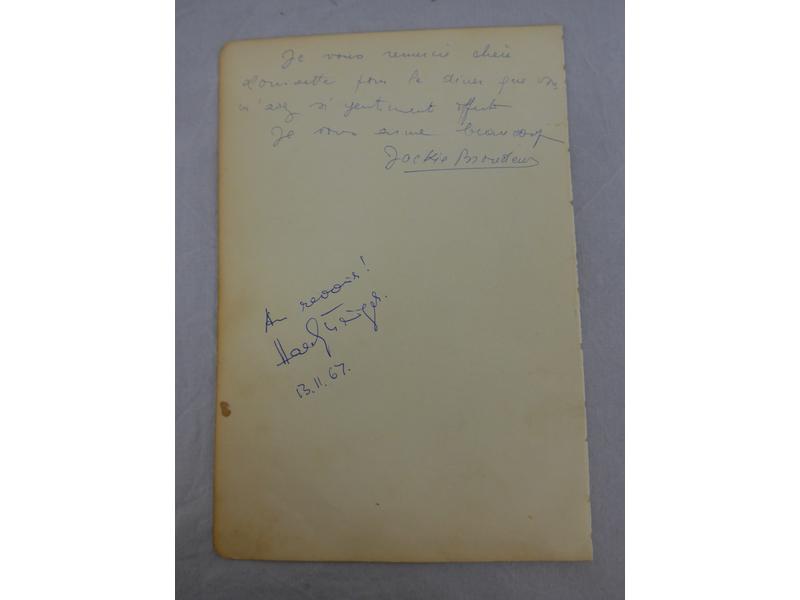 Je vous remercie chère
pour le diner que vous
m'avez si gentiment offert
Je vous aime beaucoup
Jackie
Au revoir!
Hardy Krüger.
13.11.67.